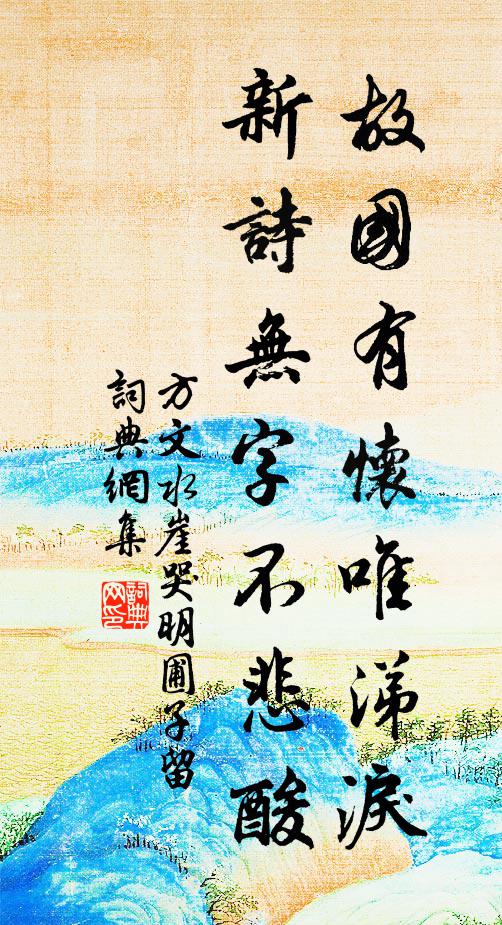 故國有懷唯涕淚
新詩無字不悲酸
方文水崖哭明圃子留
詞典網集
詞典
文印